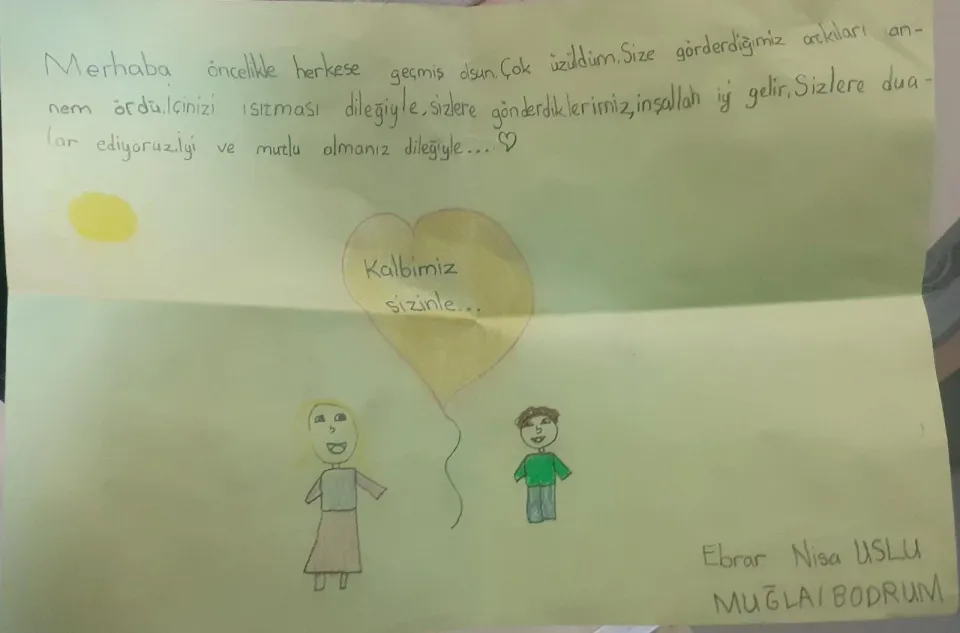 Merhaba öncelikle herkese geçmiş olsun. Çok üzüldüm. Size görderdiğimiz atkıları an-
nem ördü. İçinizi ısıtması dileğiyle, sizlere gönderdiklerimiz, inşallah iyi gelir. Sizlere dua-
lar ediyoruz. İyi ve mutlu olmanız dileğiyle... ♡
Kalbimiz
sizinle...
Ebrar Nisa USLU
MUĞLA/BODRUM